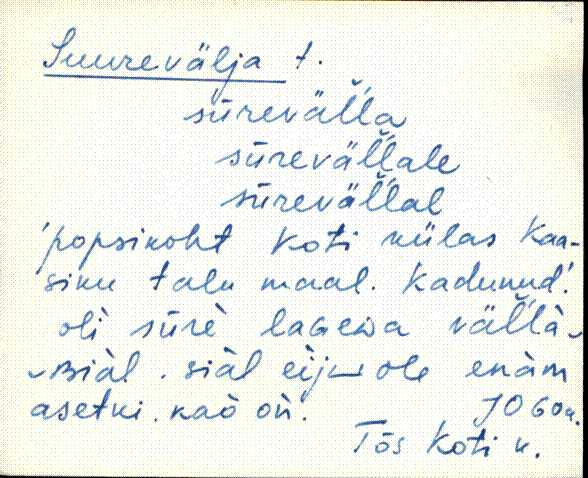 Suurevälja t.
sūrevällă
sūrevällăle
sūrevällăl
'popsikoht Koti külas Kaa-
siku talu maal. Kadunud.'
oli sūrè lageva vällà-
-ʙiàl. siàl eij ole enàm
asetki. kaò oǹ.
Tõs Koti k.